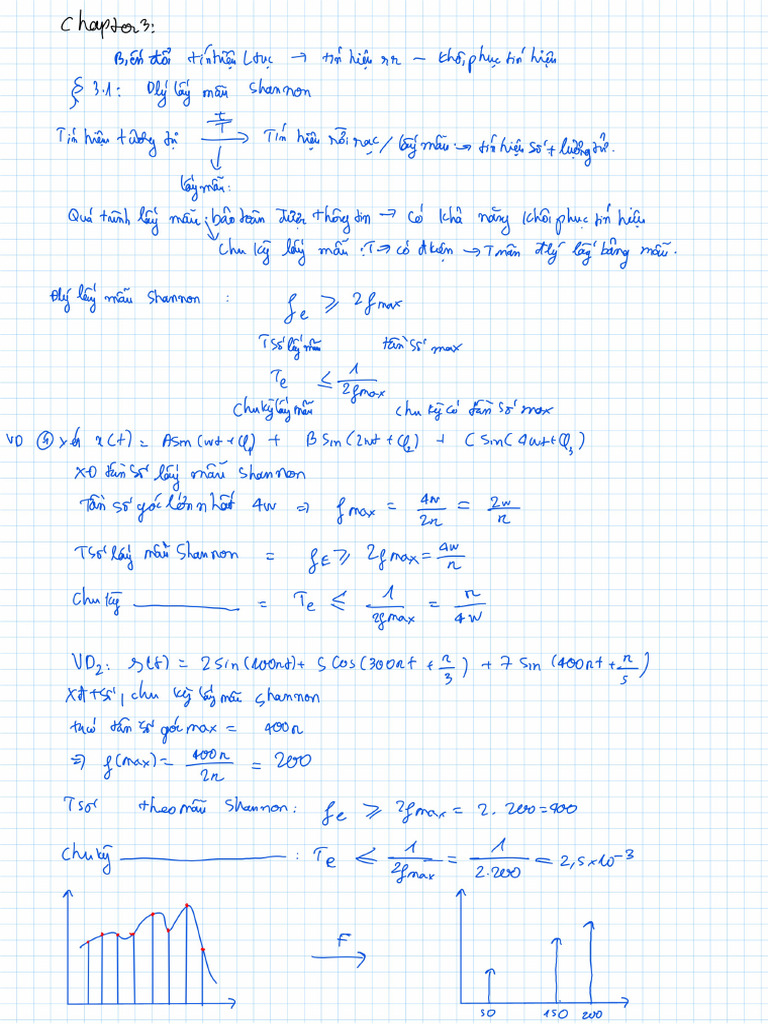 Chapter 3:
Biến đổi tín hiệu ltục → tín hiệu rr – khôi phục tín hiệu
§ 3.1: Đlý lấy mẫu Shannon
Tín hiệu tương tự t/T → Tín hiệu rời rạc/lấy mẫu → tín hiệu số + lượng tử.
lấy mẫu:
Quá trình lấy mẫu: bảo toàn được thông tin → có khả năng khôi phục tín hiệu
Chu kỳ lấy mẫu: T → có đkiện → Tmãn đlý lấy bằng mẫu.
Đlý lấy mẫu Shannon : fe ⩾ 2fmax
Tsố lấy mẫu tần số max
Te ≤ 1/2fmax
Chu kỳ lấy mẫu chu kỳ có tần số max
VD ① Xét x(t) = Asin(wt + φ1) + Bsin(2wt + φ2) + Csin(4wt + φ3)
XĐ tần số lấy mẫu Shannon
Tần số góc lớn nhất 4w ⇒ fmax = 4w/2π = 2w/π
Tsố lấy mẫu Shannon = fE ⩾ 2fmax = 4w/π
Chu kỳ ________ = Te ≤ 1/2fmax = π/4w
VD2: x(t) = 2sin(100πt) + 5cos(300πt + π/3) + 7sin(400πt + π/5)
Xđ t số, chu kỳ lấy mẫu Shannon
ta có tần số góc max = 400π
⇒ f(max) = 400π/2π = 200
Tsố theo mẫu Shannon: fe ⩾ 2fmax = 2.200 = 400
Chu kỳ ________ : Te ≤ 1/2fmax = 1/2.200 = 2,5x10⁻³
F
50 150 200